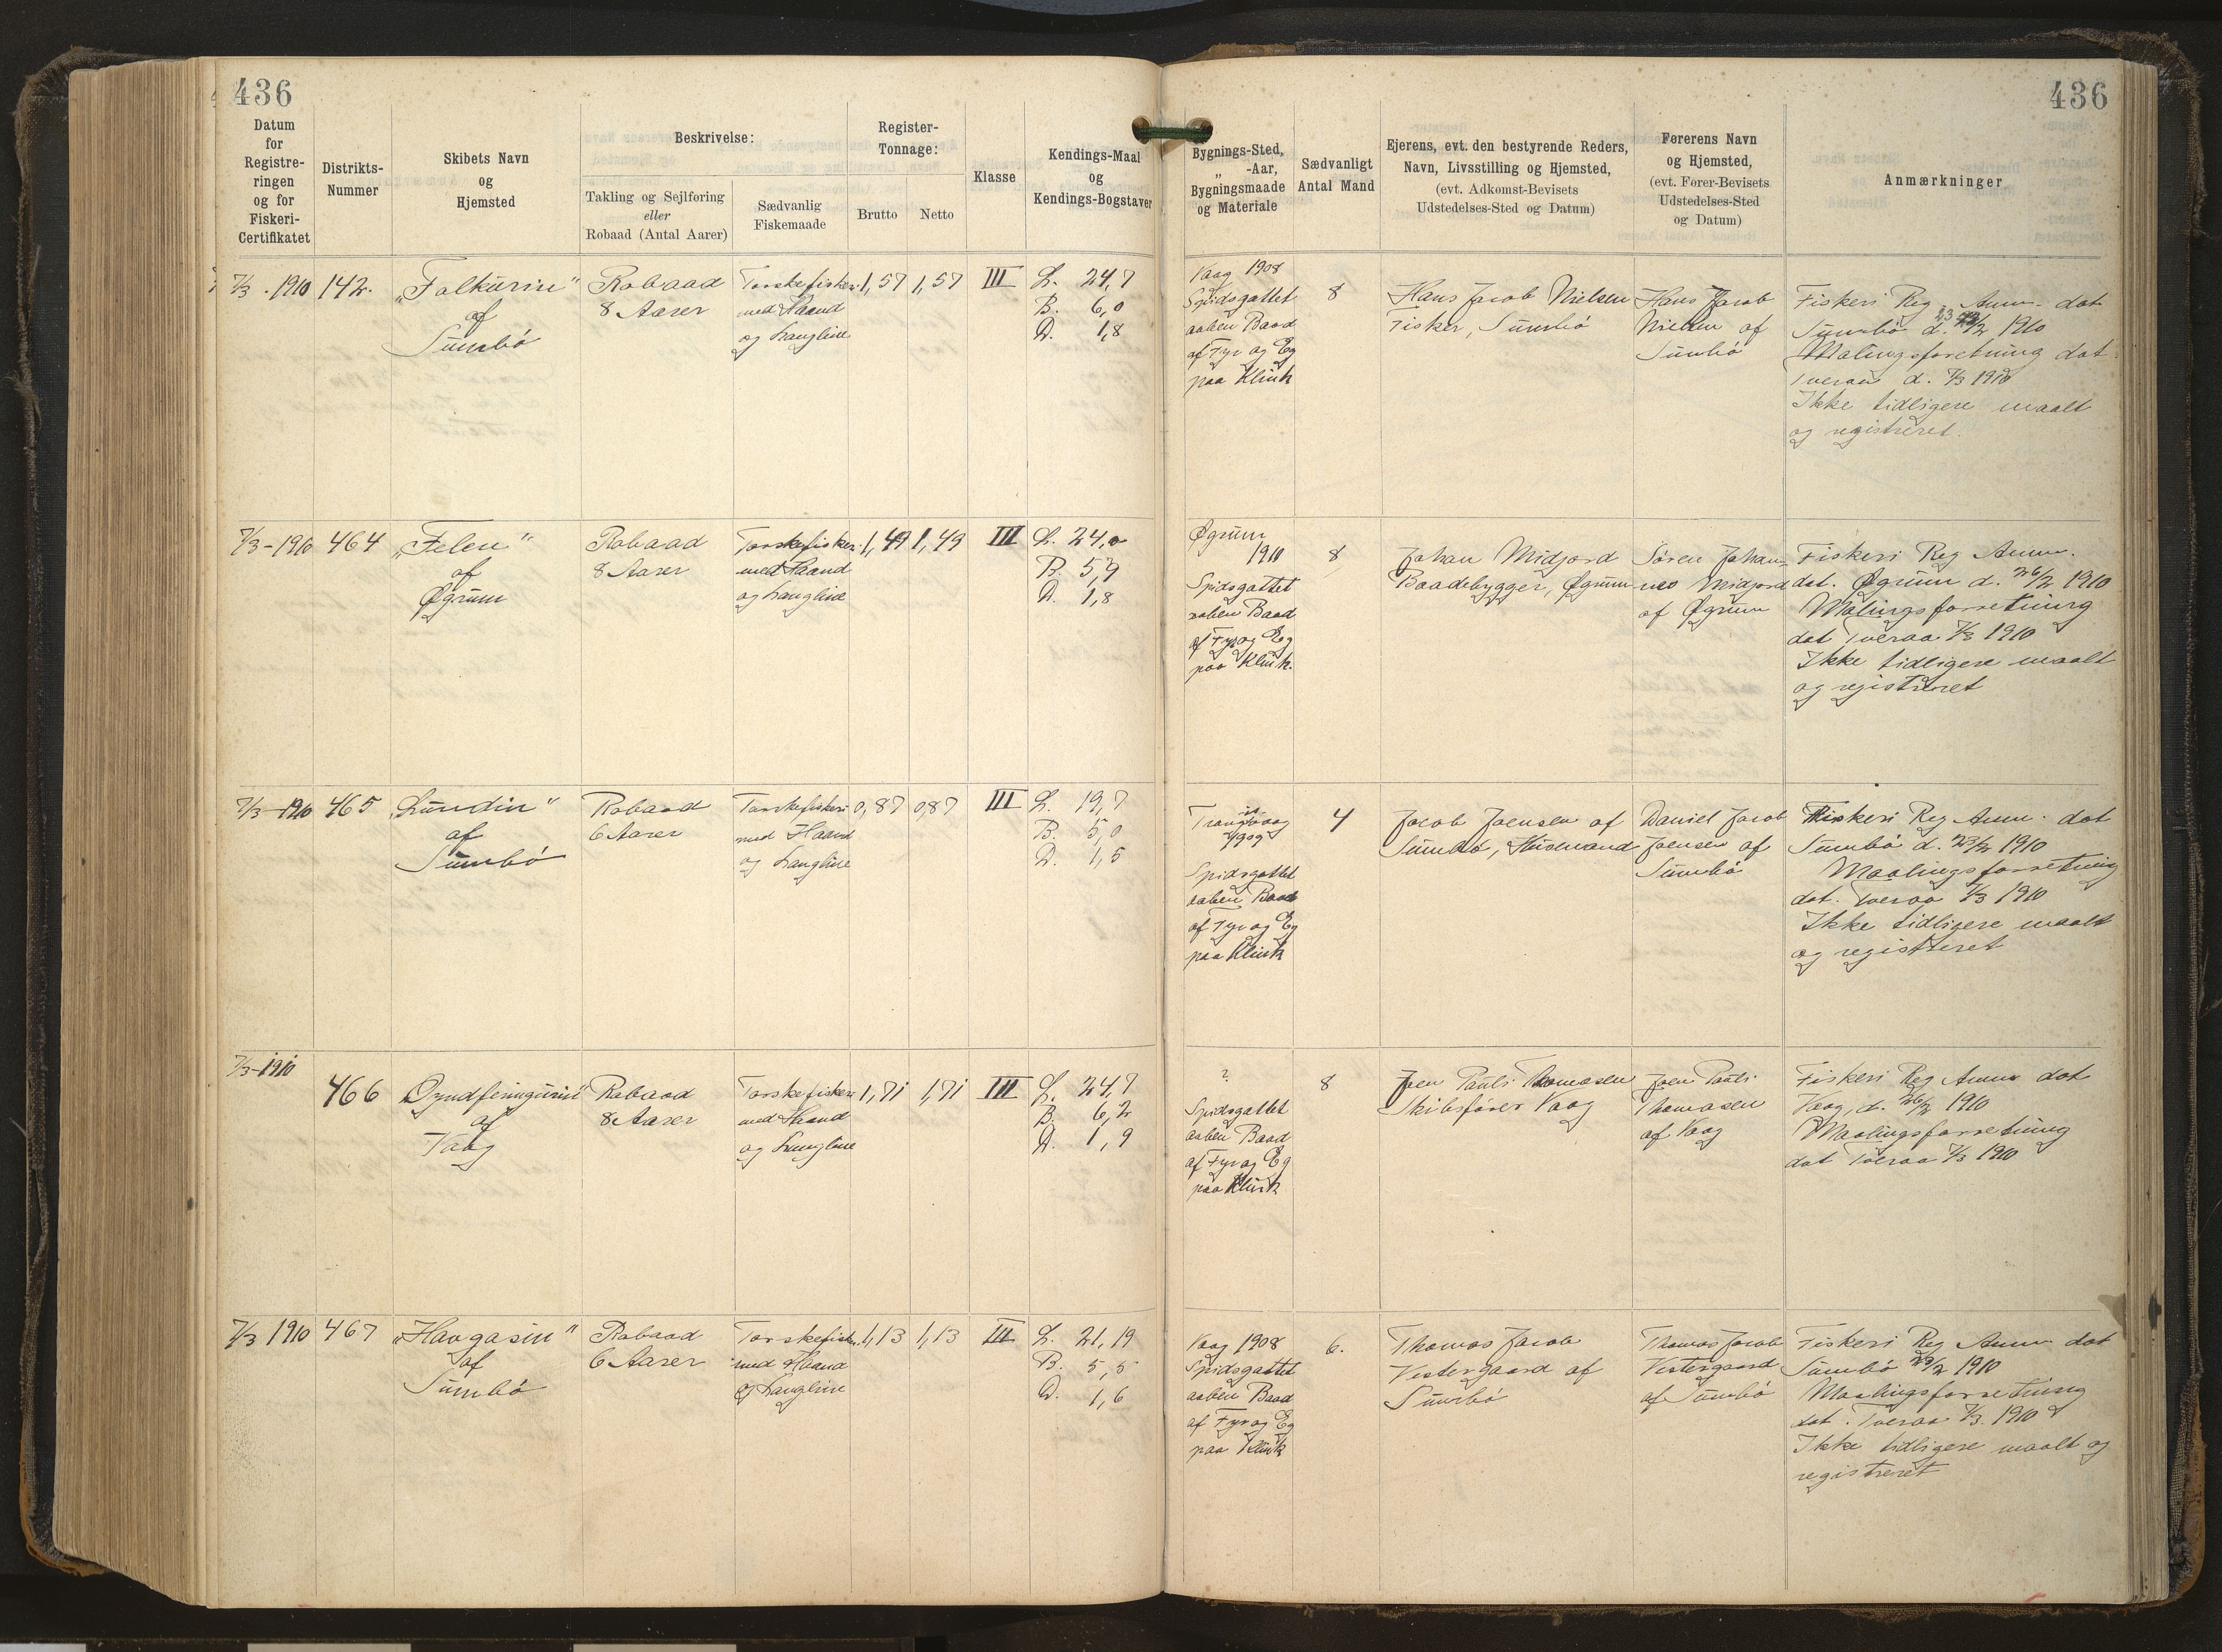 436
436
Datum
for
Registre-
ringen
og for
Fiskeri-
Certifikatet
Distrikts-
Nummer
Skibets Navn
og
Hjemsted
Beskrivelse:
Takling og Sejlføring
eller
Robaad (Antal Aarer)
Sædvanlig
Fiskemaade
Register-
Tonnage:
Brutto
Netto
Klasse
Kendings-Maal
og
Kendings-Bogstaver
Bygnings-Sted,
„ -Aar,
Bygningsmaade
og Materiale
Sædvanligt
Antal Mand
Ejerens, evt. den bestyrende Reders,
Navn, Livsstilling og Hjemsted,
(evt. Adkomst-Bevisets
Udstedelses-Sted og Datum)
Førerens Navn
og Hjemsted,
(evt. Fører-Bevisets
Udstedelses-Sted
og Datum)
Anmærkninger
7/3 . 1910
142.
„Falkurin"
af
Sumbö
Robaad
8 Aarer
Torskefiskeri
med Haand
og Langline
1,57
1,57
III
L. 24,7
B. 6,0
D. 1,8
Vaag 1908
Spidsgattet
aaben Baad
af Fyr og Eg
paa Klink
8
Hans Jacob Nielsen
Fisker, Sumbö
Hans Jacob
Nielsen af
Sumbö
Fiskeri Reg. Anm. dat
Sumbö d. 23/2 1910
Maalingsforretning dat
Tveraa d. 7/3 1910
Ikke tidligere maalt
og registreret.
7/3 - 1910
464
„Felen"
af
Øgrum
Robaad
8 Aarer
Torskefiskeri
med Haand
og Langline
1,49
1,49
III
L. 24,0
B. 5,9
D. 1,8
Øgrum
1910
Spidsgattet
aaben Baad
af Fyr og Eg
paa Klink.
8
Johan Midjord
Baadebygger, Øgrum
Søren Johan-
nes Midjord
af Øgrum
Fiskeri Reg Anm.
dat. Øgrum d. 26/2 1910
Maalingsforretning
dat Tveraa 7/3 1910
Ikke tidligere maalt
og registreret
7/3 - 1910
465
„Lundin"
af
Sumbö
Robaad
6 Aarer
Torskefiskeri
med Haand
og Langline
0,87
0,87
III
L. 19,7
B. 5,0
D. 1,5
Trangisvaag
1909
Spidsgattet
aaben Baad
af Fyr og Eg
paa Klink
4
Jacob Joensen af
Sumbö, Husmand
Daniel Jacob
Joensen af
Sumbö
Fiskeri Reg Anm. dat
Sumbö d. 23/2 1910
Maalingsforretning
dat. Tveraa 7/3 1910
Ikke tidligere maalt
og registreret
7/3 - 1910
466
af
Vaag
Robaad
8 Aarer
Torskefiskeri
med Haand
og Langline
1,71
1,71
III
L. 24,7
B. 6,2
D. 1,9
?
Spidsgattet
aaben Baad
af Fyr og Eg
paa Klink
8
Joen Pauli Thomasen
Skibsfører Vaag
Joen Pauli
Thomasen
af Vaag
Fiskeri Reg Anm dat
Vaag, d. 26/2 1910
Maalingsforretning
dat Tveraa 7/3 1910
7/3 1910
467
„Havgasin"
af
Sumbö
Robaad
6 Aarer
Torskefiskeri
med Haand
og Langline
1,13
1,13
III
L. 21,19
B. 5,5
D. 1,6
Vaag 1908
Spidsgattet
aaben Baad
af Fyr og Eg
paa Klink
6.
Thomas Jacob
Vestergaard af
Sumbö
Thomas Jacob
Vestergaard
af Sumbö
Fiskeri Reg Anm dat
Sumbö 23/2 1910
Maalingsforretning
dat. Tveraa 7/3. 1910
Ikke tidligere maalt og
registreret